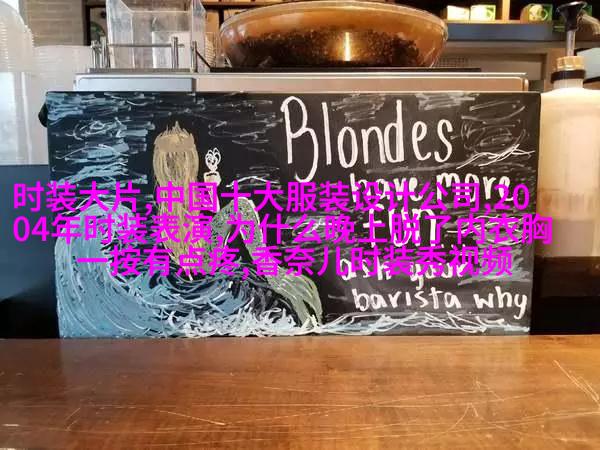 Blondes
have more
时装大片,中国十大服装设计公司,20
04年时装表演,为什么晚上脱了内衣胸
一按有点疼,香奈儿时装秀视频
barista why